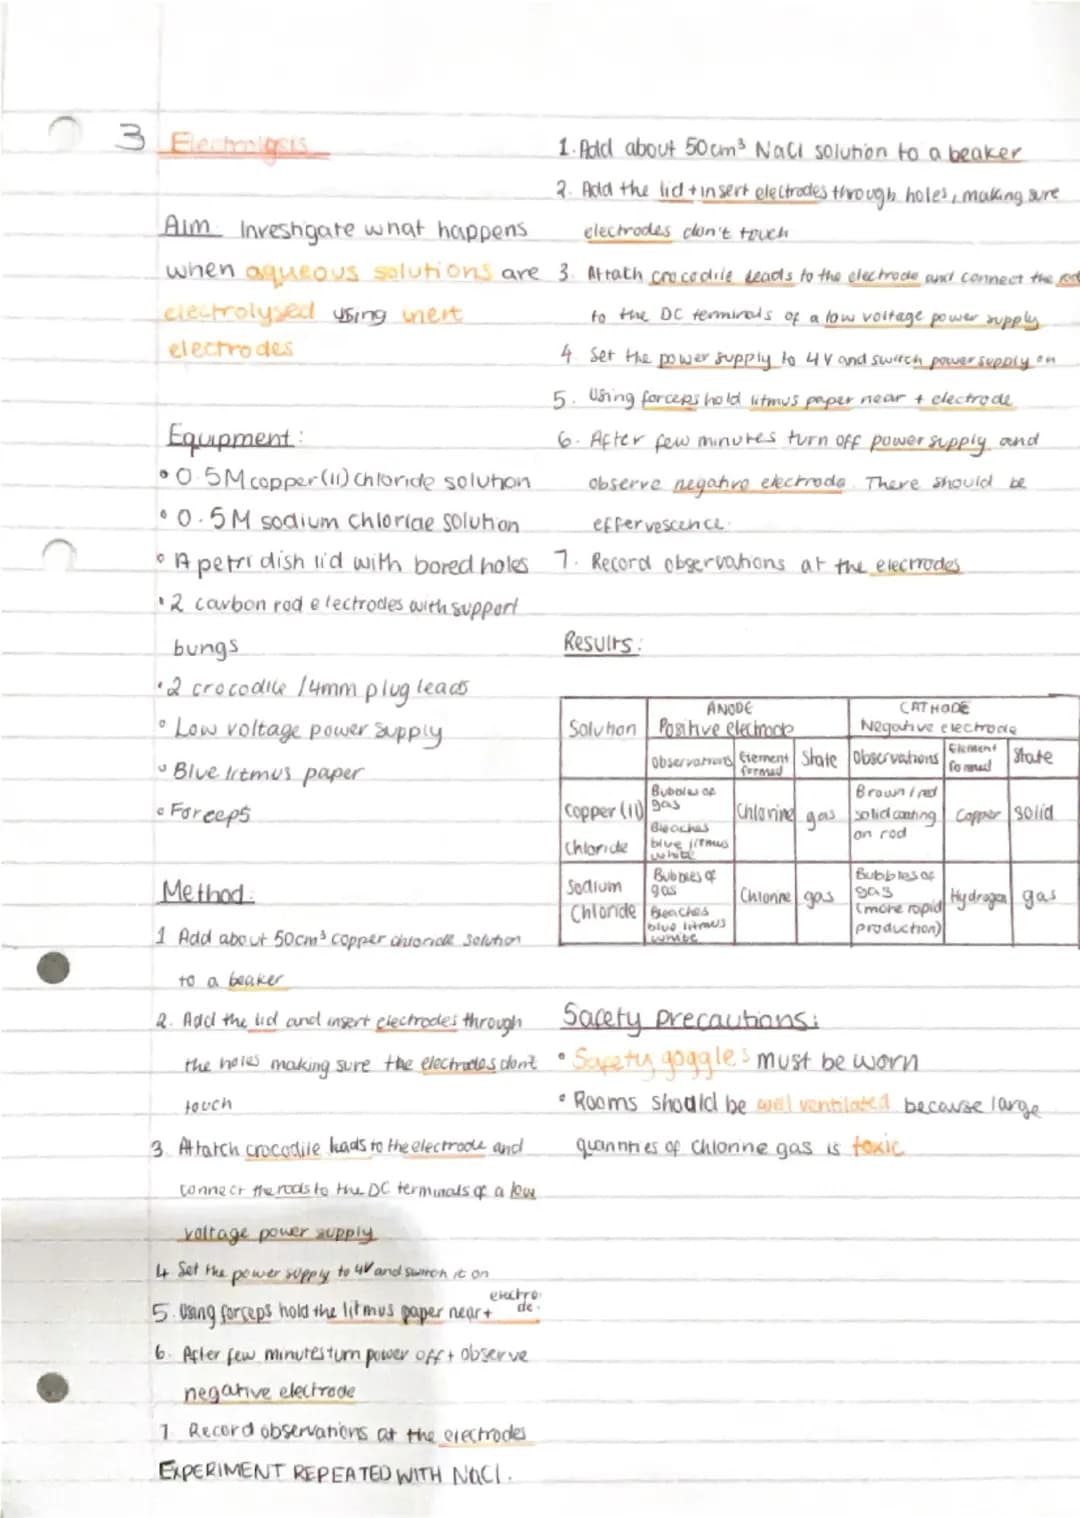 3 Electrolysis
Aim: Investigate what happens
when aqueous solutions are
electrolysed using inert
electrodes
Equipment:
• 0.5M copper(II) chloride solution
• 0.5M sodium chloride solution
• A petri dish lid with bored holes
• 2 carbon rod electrodes with support
bungs
• 2 crocodile /4mm plug leads
• Low voltage power supply
• Blue litmus paper
• Forceps
Method:
1 Add about 50cm³ copper chloride solution
to a beaker
2. Add the lid and insert electrodes through
the holes making sure the electrodes dont
touch
3. Attatch crocodile leads to the electrode and
connect the rods to the DC terminals of a low
voltage power supply
4 Set the power supply to 4V and switch it on
5. Using forceps hold the litmus paper near + electro
de.
6. After few minutes turn power off + observe
negative electrode
7 Record observations at the electrodes
EXPERIMENT REPEATED WITH NaCl.
1. Add about 50cm³ NaCl solution to a beaker
2. Add the lid + insert electrodes through holes, making sure
electrodes don't touch
3. Attatch crocodile leads to the electrode and connect the rod
to the DC terminals of a low voltage power supply
4. Set the power supply to 4V and switch power supply on
5. Using forceps hold litmus paper near + electrode
6. After few minutes turn off power supply and
observe negative electrode. There should be
effervescence.
7. Record observations at the electrodes
Results:
Solution
ANODE
Positive electrode
CATHODE
Negative electrode
Observations
Element
formed
State
Observations
Element
formed
State
Copper (II)
Chloride
Bubbles of
gas
Bleaches
blue litmus
white
Chlorine
gas
Brown/red
solid coating
on rod
Copper
solid
Sodium
Chloride
Bubbles of
gas
Bleaches
blue litmus
white
Chlorine
gas
Bubbles of
gas
(more rapid
production)
Hydrogen
gas
Safety precautions:
• Safety goggles must be worn
• Rooms should be well ventilated because large
quantities of chlorine gas is toxic